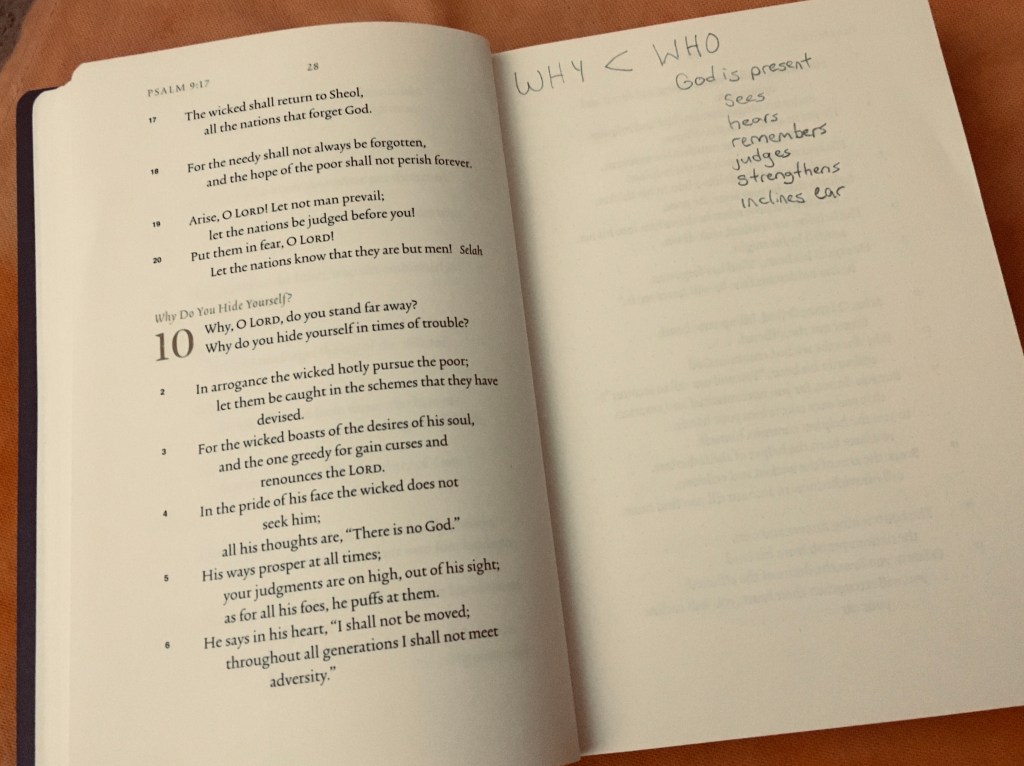 PSALM 9:17
28
17 The wicked shall return to Sheol,
all the nations that forget God.
18 For the needy shall not always be forgotten,
and the hope of the poor shall not perish forever.
19 Arise, O LORD! Let not man prevail;
let the nations be judged before you!
20 Put them in fear, O LORD!
Let the nations know that they are but men! Selah
Why Do You Hide Yourself?
10 Why, O LORD, do you stand far away?
Why do you hide yourself in times of trouble?
2 In arrogance the wicked hotly pursue the poor;
let them be caught in the schemes that they have
devised.
3 For the wicked boasts of the desires of his soul,
and the one greedy for gain curses and
renounces the LORD.
4 In the pride of his face the wicked does not
seek him;
all his thoughts are, “There is no God.”
5 His ways prosper at all times;
your judgments are on high, out of his sight;
as for all his foes, he puffs at them.
6 He says in his heart, “I shall not be moved;
throughout all generations I shall not meet
adversity.”
WHY < WHO
God is present
sees
hears
remembers
judges
strengthens
inclines ear